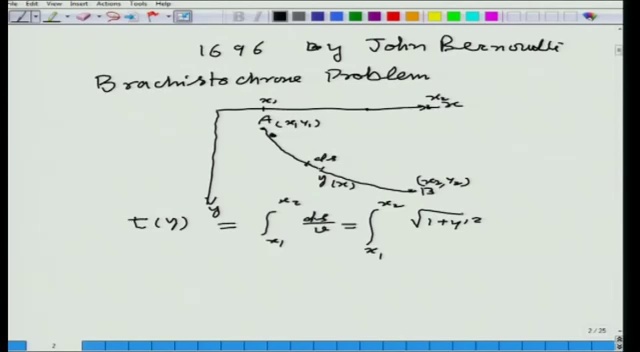 File Edit View Insert Actions Tools Help
1696 by John Bernoulli
Brachistochrone Problem
x₁ x₂ x
A(x₁,y₁)
ds
y(x)
(x₂,y₂)
B
y
t(y) = ∫_{x₁}^{x₂} ds/v = ∫_{x₁}^{x₂} √1+y'²
2 / 25
2